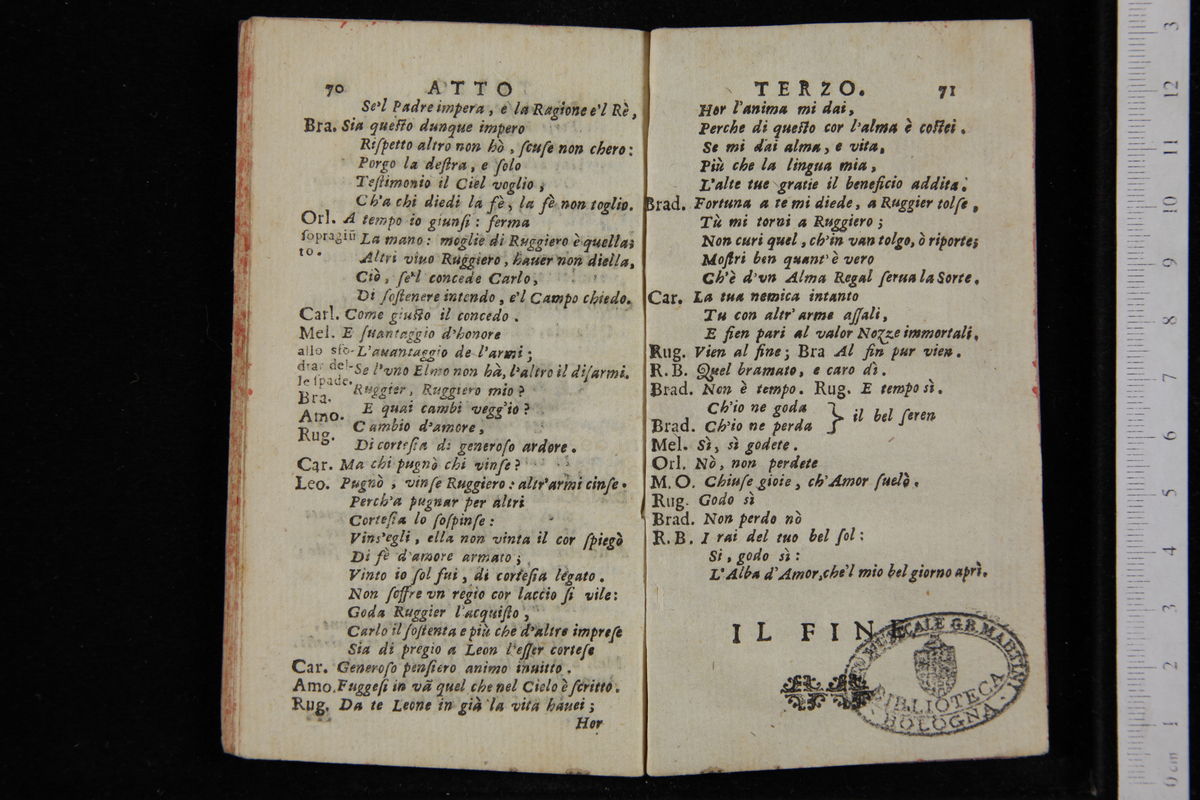 70 ATTO
Se'l Padre impera, e la Ragione e'l Rè,
Bra. Sia questo dunque impero
Rispetto altro non hò, scuse non chero:
Porgo la destra, e solo
Testimonio il Ciel voglio,
Ch'a chi diedi la fè, la fè non toglio.
Orl. A tempo io giunsi: ferma
sopragiū La mano: moglie di Ruggiero è quella;
to. Altri viuo Ruggiero, hauer non diella,
Ciò, se'l concede Carlo,
Di sostenere intendo, e'l Campo chiedo.
Carl. Come giusto il concedo.
Mel. E suantaggio d'honore
allo sfo- L'auantaggio de l'armi;
drar del- Se l'vno Elmo non hà, l'altro il disarmi.
le spade. Ruggier, Ruggiero mio?
Bra. E quai cambi vegg'io?
Amo. Cambio d'amore,
Rug. Di cortesia di generoso ardore.
Car. Ma chi pugnò chi vinse?
Leo. Pugnò, vinse Ruggiero: altr'armi cinse.
Perch'a pugnar per altri
Cortesia lo sospinse:
Vins'egli, ella non vinta il cor spiegò
Di fè d'amore armato;
Vinto io sol fui, di cortesia legato.
Non soffre vn regio cor laccio si vile:
Goda Ruggier l'acquisto,
Carlo il sostenta e più che d'altre imprese
Sia di pregio a Leon l'esser cortese
Car. Generoso pensiero animo inuitto.
Amo. Fuggesi in vā quel che nel Cielo è scritto.
Rug. Da te Leone in già la vita hauei;
Hor
TERZO. 71
Hor l'anima mi dai,
Perche di questo cor l'alma è costei.
Se mi dai alma, e vita,
Più che la lingua mia,
L'alte tue gratie il beneficio addita.
Brad. Fortuna a te mi diede, a Ruggier tolse,
Tù mi torni a Ruggiero;
Non curi quel, ch'in van tolgo, ò riporte;
Mostri ben quant'è vero
Ch'è d'vn Alma Regal serua la Sorte.
Car. La tua nemica intanto
Tu con altr'arme assali,
E sien pari al valor Nozze immortali.
Rug. Vien al fine; Bra Al fin pur vien.
R.B. Quel bramato, e caro dì.
Brad. Non è tempo. Rug. E tempo sì.
Ch'io ne goda } il bel seren
Brad. Ch'io ne perda
Mel. Sì, sì godete.
Orl. Nò, non perdete
M.O. Chiuse gioie, ch'Amor suelò.
Rug. Godo sì
Brad. Non perdo nò
R.B. I rai del tuo bel sol:
Si, godo sì:
L'Alba d'Amor, che'l mio bel giorno aprì.
IL FINE
MUSICALE G.B. MARTINI
BIBLIOTECA
BOLOGNA
3
12
11
10
9
8
7
6
5
4
3
2
1
0 cm